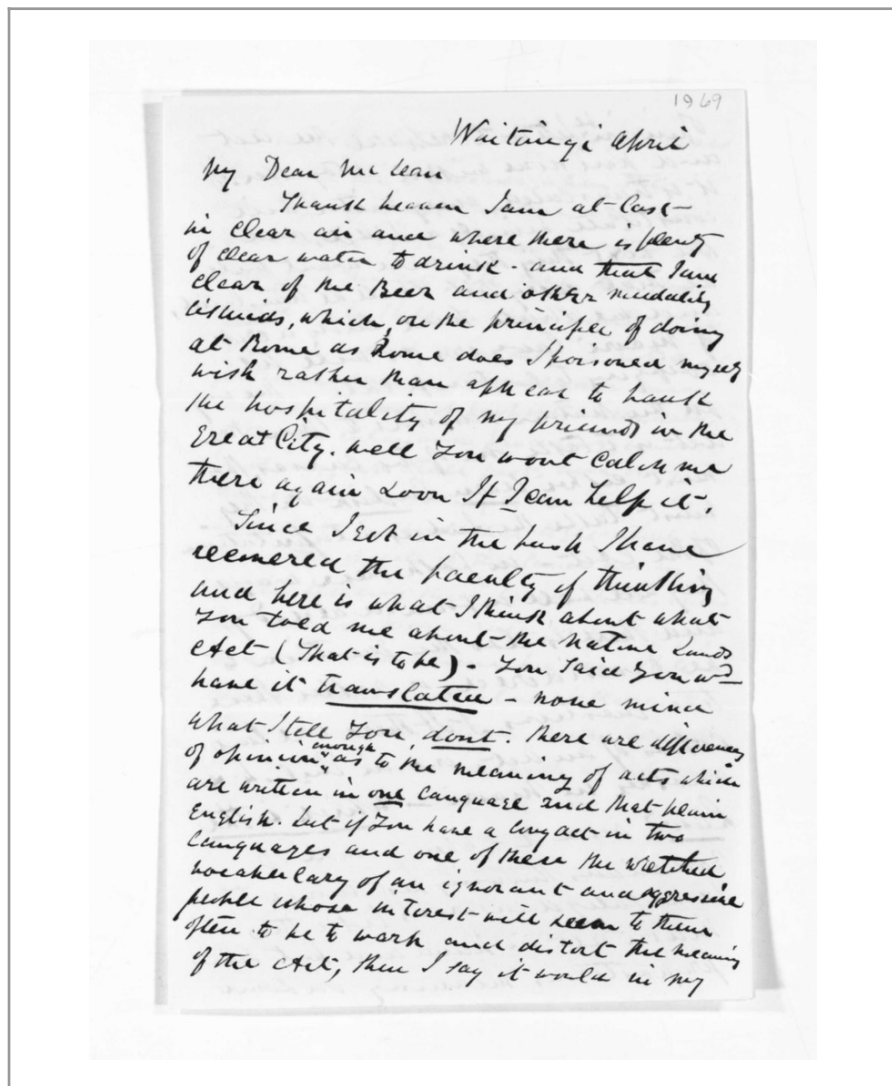 1869
Waitangi April
My Dear McLean
Thank heaven I am at last
in clear air and where there is plenty
of clear water to drink - and that I am
clear of the Beer and other
liquids, which, on the principle of doing
at Rome as Rome does I poisoned myself
with rather than appear to
the hospitality of my friends in the
Great City. Well you wont catch me
there again soon If I can help it.
Since I got in the bush I have
recovered the faculty of thinking
and here is what I think about what
you told me about the Native Lands
Act (That is to be) - You said you wd
have it translated - now mind
what I tell you, dont. there are differences
of opinion enough as to the meaning of acts which
are written in one language and that plain
English. but if you have a long act in two
languages and one of these the wretched
vocabulary of an ignorant and aggressive
people whose interest will seem to them
often to be to warp and distort the meaning
of the Act, then I say it would in my